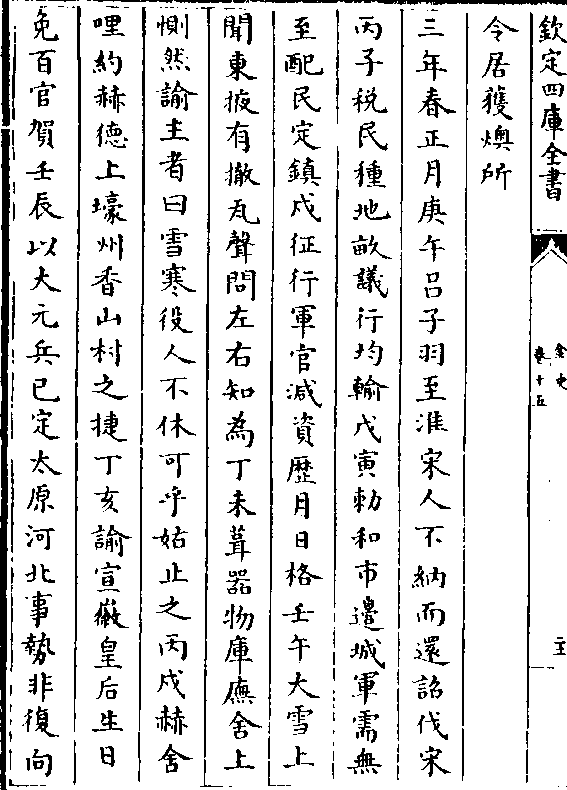 欽定四庫全書
金史
卷十五
令居獲燠所
三年春正月庚午呂子羽至淮宋人不納而還詔伐宋
丙子税民種地畝議行均輸戊寅勅和市邊城軍需無
至配民定鎮戍征行軍官減資歴月日格壬午大雪上
聞東掖有撤瓦聲問左右知為丁夫葺器物庫廡舍上
惻然諭主者曰雪寒役人不休可乎姑止之丙戌赫舍
哩約赫德上壕州香山村之捷丁亥諭宣徽皇后生日
免百官賀壬辰以大元兵已定太原河北事勢非復向